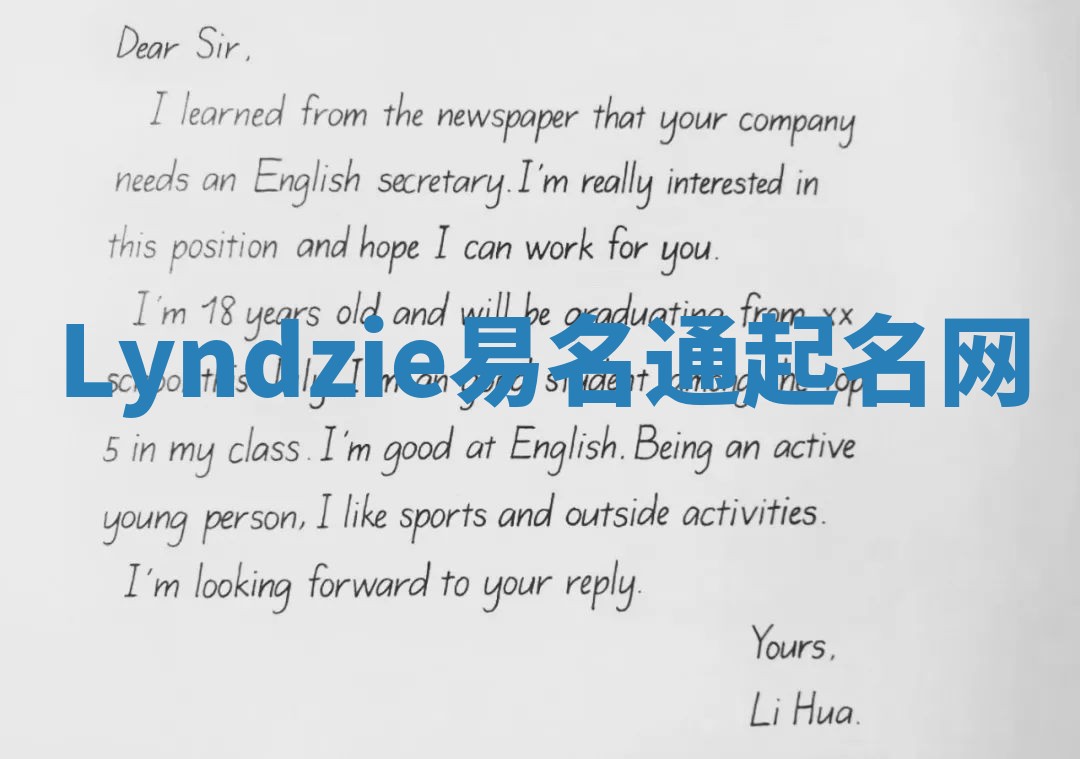 Dear Sir,
I learned from the newspaper that your company
needs an English secretary. I'm really interested in
this position and hope I can work for you.
I'm 18 years old and will be graduating from xx
Lyndzie易名通起名网
school this July. I'm an good student among the top
5 in my class. I'm good at English. Being an active
young person, I like sports and outside activities.
I'm looking forward to your reply.
Yours,
Li Hua.